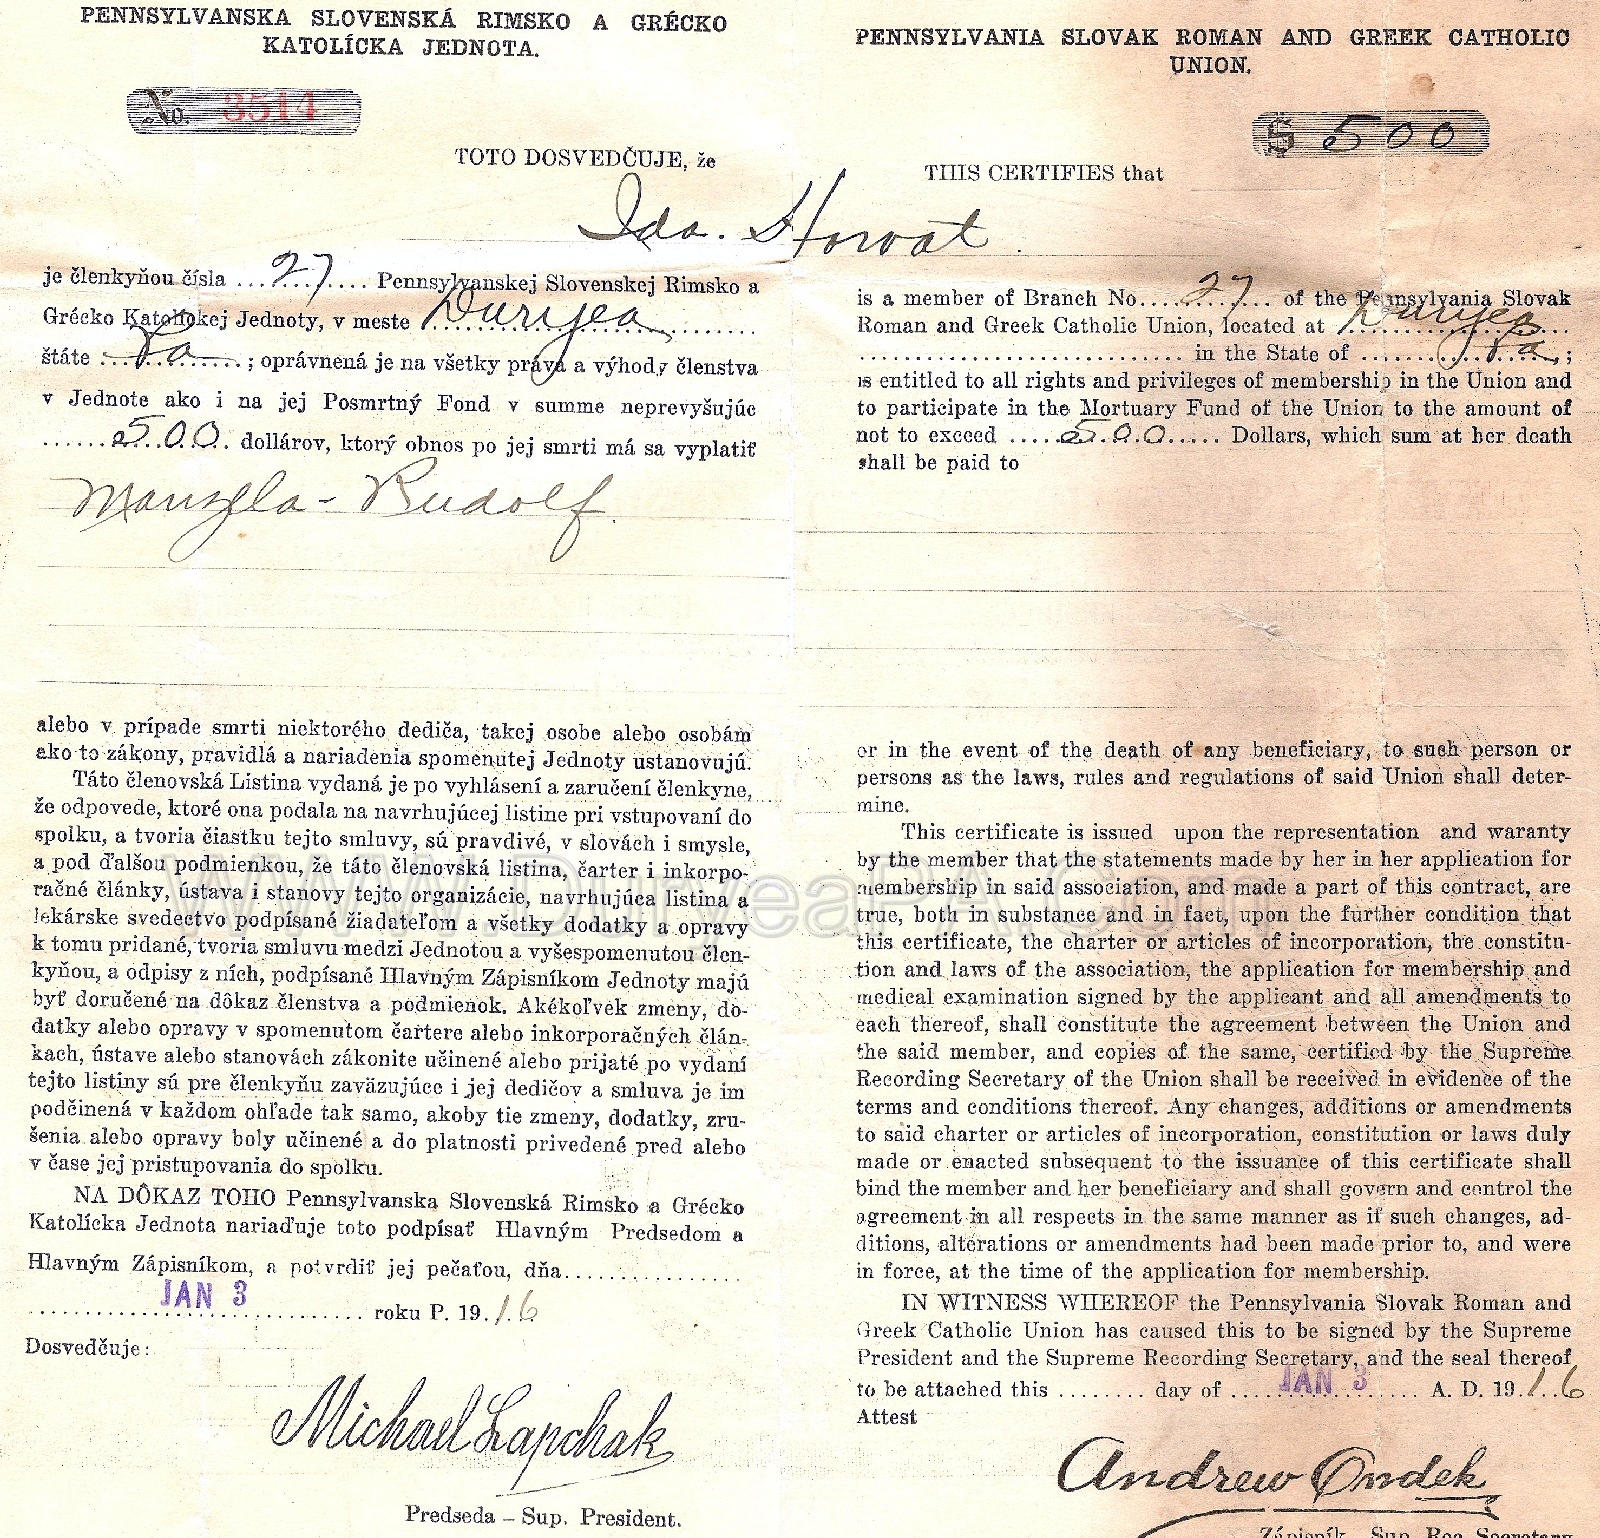 PENNSYLVANSKA SLOVENSKÁ RIMSKO A GRÉCKO
KATOLÍCKA JEDNOTA.
No. 3514
TOTO DOSVEDČUJE, že
Ida. Horvat
je členkyňou čísla ...27.... Pennsylvanskej Slovenskej Rimsko a
Grécko Katolíckej Jednoty, v meste Duryea
štáte Pa ; oprávnená je na všetky práva a výhody členstva
v Jednote ako i na jej Posmrtný Fond v summe neprevyšujúc
......500. dollárov, ktorý obnos po jej smrti má sa vyplatiť
Manžela - Rudolf.
alebo v prípade smrti niektorého dediča, takej osobe alebo osobám
ako to zákony, pravidlá a nariadenia spomenutej Jednoty ustanovujú.
Táto členovská Listina vydaná je po vyhlásení a zaručení členkyne,
že odpovede, ktoré ona podala na navrhujúcej listine pri vstupovaní do
spolku, a tvoria čiastku tejto smluvy, sú pravdivé, v slovách i smysle,
a pod ďalšou podmienkou, že táto členovská listina, čarter i inkorpo-
račné články, ústava i stanovy tejto organizácie, navrhujúca listina a
lekárske svedectvo podpísané žiadateľom a všetky dodatky a opravy
k tomu pridané, tvoria smluvu medzi Jednotou a vyšespomenutou člen-
kyňou, a odpisy z ních, podpísané Hlavným Zápisníkom Jednoty majú
byť doručené na dôkaz členstva a podmienok. Akékoľvek zmeny, do-
datky alebo opravy v spomenutom čartere alebo inkorporačných člán-
kach, ústave alebo stanovách zákonite učinené alebo prijaté po vydaní
tejto listiny sú pre členkyňu zaväzujúce i jej dedičov a smluva je im
podčinená v každom ohľade tak samo, akoby tie zmeny, dodatky, zru-
šenia alebo opravy boly učinené a do platnosti privedené pred alebo
v čase jej pristupovania do spolku.
NA DÔKAZ TOHO Pennsylvanska Slovenská Rimsko a Grécko
Katolícka Jednota nariaďuje toto podpísať Hlavným Predsedom a
Hlavným Zápisníkom, a potvrdiť jej pečaťou, dňa................
JAN 3 roku P. 19.16
Dosvedčuje:
Michael Lapchak
Predseda – Sup. President.
PENNSYLVANIA SLOVAK ROMAN AND GREEK CATHOLIC
UNION.
$ 500
THIS CERTIFIES that
is a member of Branch No....27... of the Pennsylvania Slovak
Roman and Greek Catholic Union, located at Duryea
................................ in the State of ............Pa.;
is entitled to all rights and privileges of membership in the Union and
to participate in the Mortuary Fund of the Union to the amount of
not to exceed .....500..... Dollars, which sum at her death
shall be paid to
or in the event of the death of any beneficiary, to such person or
persons as the laws, rules and regulations of said Union shall deter-
mine.
This certificate is issued upon the representation and waranty
by the member that the statements made by her in her application for
membership in said association, and made a part of this contract, are
true, both in substance and in fact, upon the further condition that
this certificate, the charter or articles of incorporation, the constitu-
tion and laws of the association, the application for membership and
medical examination signed by the applicant and all amendments to
each thereof, shall constitute the agreement between the Union and
the said member, and copies of the same, certified by the Supreme
Recording Secretary of the Union shall be received in evidence of the
terms and conditions thereof. Any changes, additions or amendments
to said charter or articles of incorporation, constitution or laws duly
made or enacted subsequent to the issuance of this certificate shall
bind the member and her beneficiary and shall govern and control the
agreement in all respects in the same manner as if such changes, ad-
ditions, alterations or amendments had been made prior to, and were
in force, at the time of the application for membership.
IN WITNESS WHEREOF the Pennsylvania Slovak Roman and
Greek Catholic Union has caused this to be signed by the Supreme
President and the Supreme Recording Secretary, and the seal thereof
to be attached this ........ day of ....JAN 3.... A. D. 19.16
Attest
Andrew Ondek
Zápisník - Sup Rec Secretary
WWW.DuryeaPA.Com